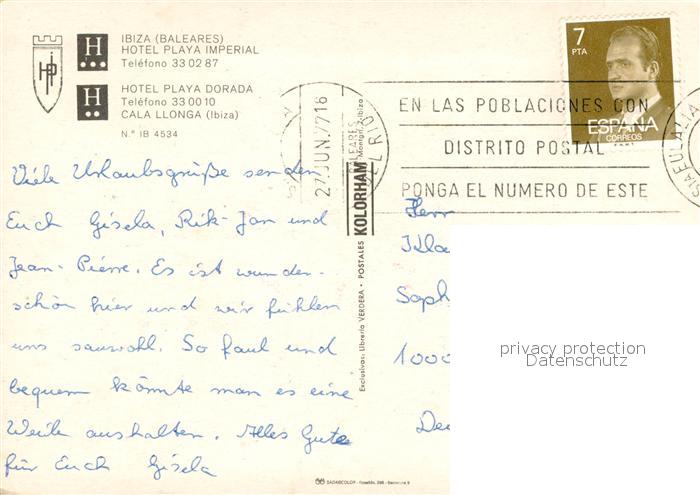 IBIZA (BALEARES)
HOTEL PLAYA IMPERIAL
Teléfono 33 02 87
HOTEL PLAYA DORADA
Teléfono 33 00 10
CALA LLONGA (Ibiza)
N.º IB 4534
H
H
7
PTA
ESPAÑA
CORREOS
EN LAS POBLACIONES CON
DISTRITO POSTAL
PONGA EL NUMERO DE ESTE
JUN.77
BALEARES
DEL RIO
STA EULALIA
Viele Urlaubsgrüße senden
Euch Gisela, Rik-Jan und
Jean-Pierre. Es ist wunder-
schön hier und wir fühlen
uns sauwohl. So faul und
bequem könnte man es eine
Weile aushalten. Alles Gute
für Euch Gisela
Exclusivas: Librería VERDERA • POSTALES KOLORHAM
Herr
Kla
Soph
1000
privacy protection
Datenschutz